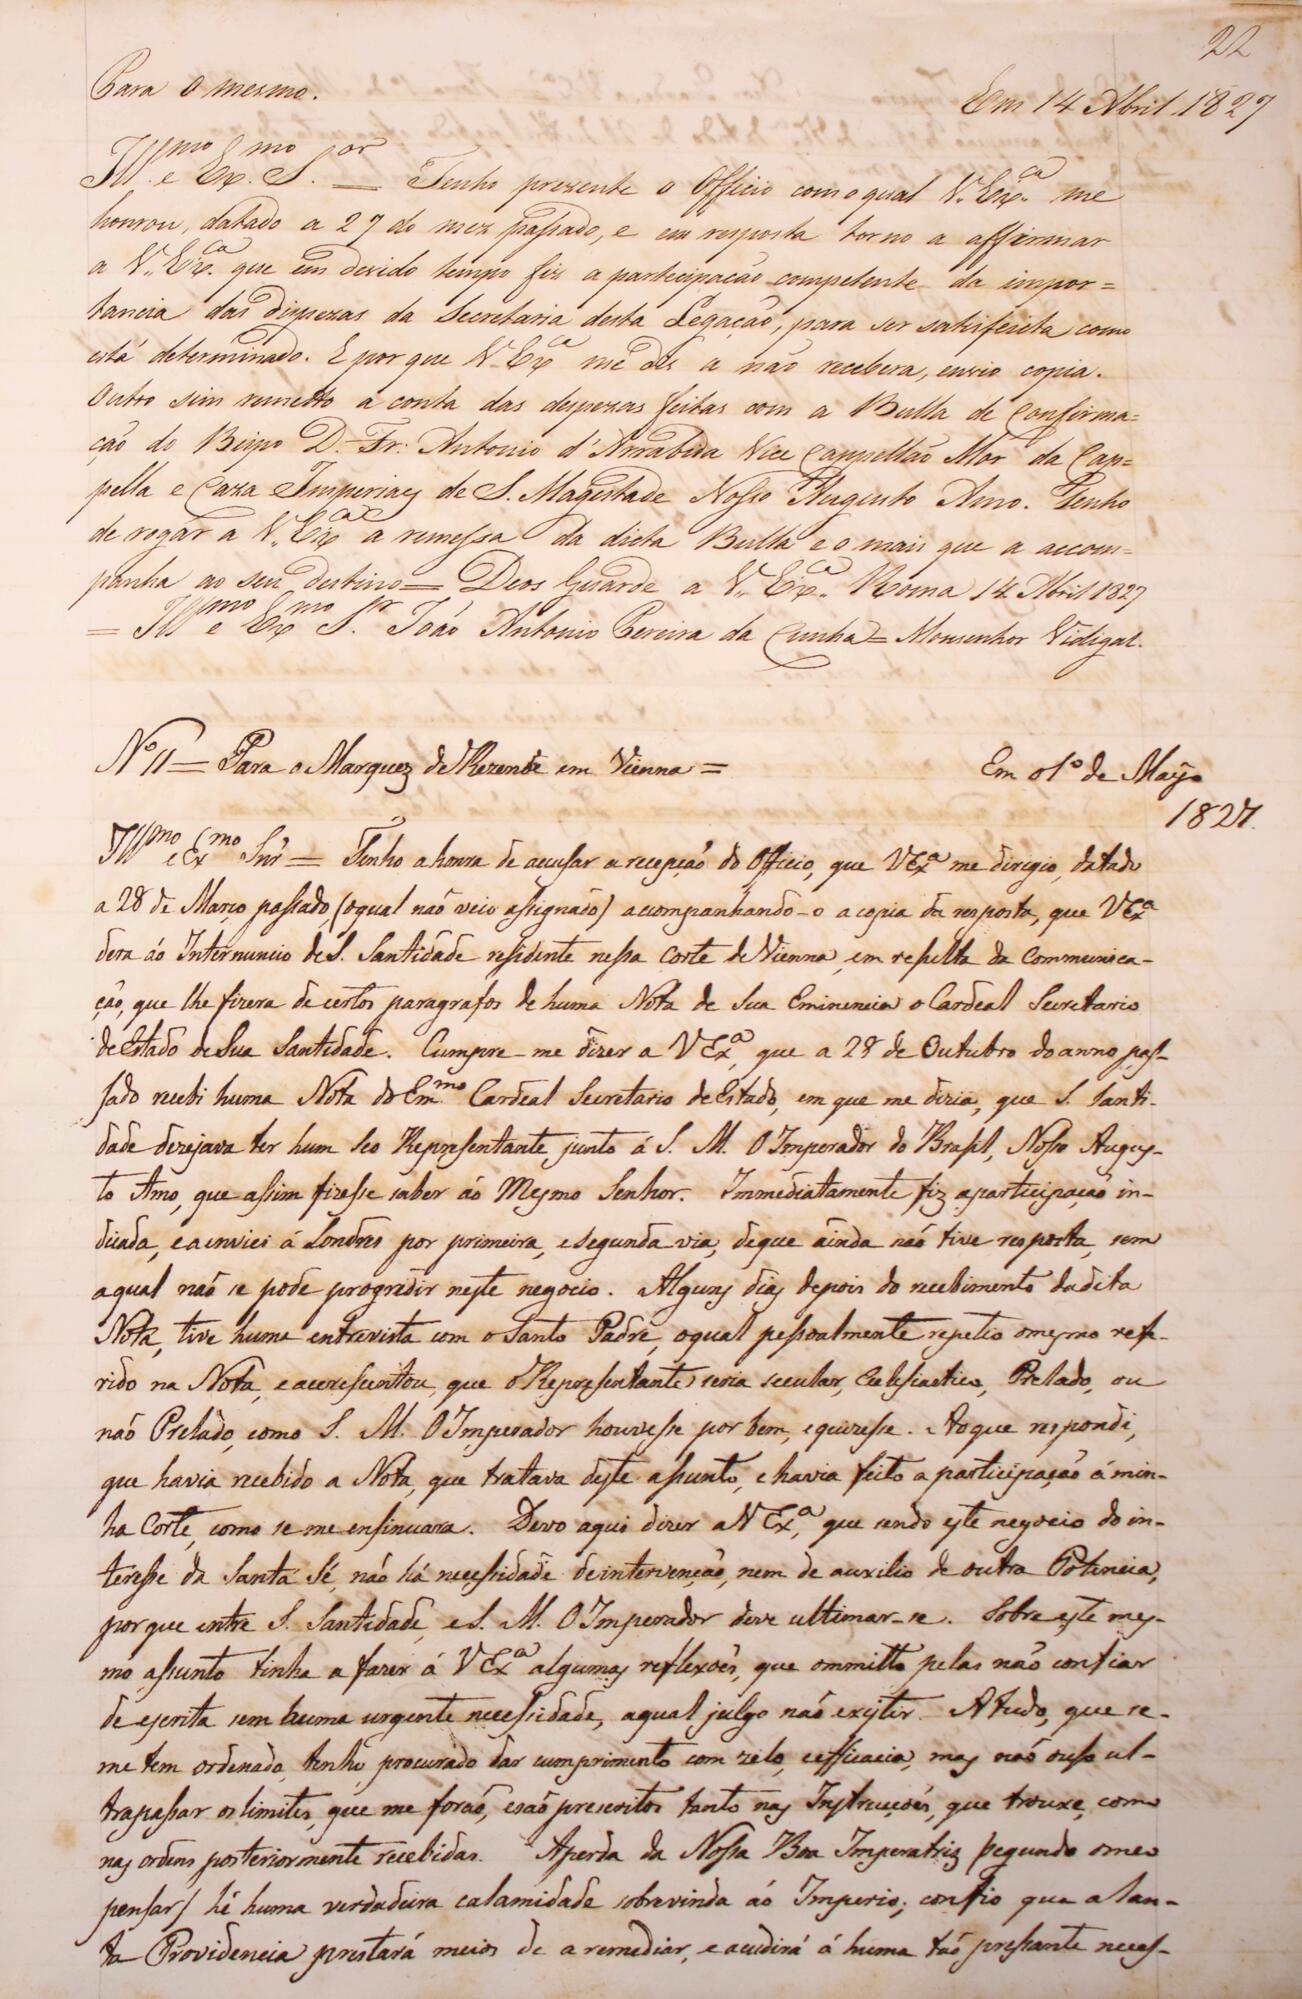 22
Para o mesmo. Em 14 Abril 1827
Ill.mo e Ex.mo S.or = Tenho prezente o Officio com o qual V. Ex.ca me
honrou, datado a 27 do mez passado, e em resposta torno a affirmar
a V. Ex.ca que em devido tempo fiz a participacão competente da impor=
tancia das dispezas da Secretaria desta Legação, para ser satisfeicta como
está determinado. E por que V. Ex.ca me diz a não recebera, envio copia.
Outro sim remetto a conta das despezas feitas com a Bulla de Confirma=
ção do Bispo D. Fr. Antonio d'Arrabida Vice Cappellão Mor da Cap=
pella e Caza Imperiaes de S. Magestade Nosso Augusto Amo. Tenho
de rogar a V. Ex.ca a remessa da dicta Bulla e o mais que a accom=
panha ao seu destino = Deos Guarde a V. Ex.ca Roma 14 Abril 1827
= Ill.mo e Ex.mo S.r João Antonio Pereira da Cunha = Monsenhor Vidigal.
Nº 11 = Para o Marquez de Rezende em Vienna = Em 01º de Mayo
1827.
Ill.mo e Ex.mo Snr = Tenho a honra de accusar a recepção do Officio, que V Ex.a me dirigio, datado
a 28 de Março passado, (o qual não veio assignado) acompanhando-o a copia da resposta, que V Ex.a
dera áo Internuncio de S. Santidade residente nessa Corte de Vienna, em resulta da communica-
ção, que lhe fizera de certos paragrafos de huma Nota de Sua Eminencia o Cardeal Secretario
de Estado de Sua Santidade. Cumpre-me dizer a V Ex.a, que a 28 de Outubro do anno pas-
sado recebi huma Nota do Em.mo Cardeal Secretario de Estado, em que me dizia, que S. Santi-
dade dezejava ter hum seo Representante junto á S. M. O Imperador do Brasil, Nosso Augus-
to Amo, que assim fizesse saber áo Mesmo Senhor. Immediatamente fiz a participação in-
dicada, e a enviei á Londres por primeira, e segunda via, de que áinda não tive resposta, sem
a qual não se pode progredir neste negocio. Alguns dias depois do recebimento da dita
Nota, tive huma entrevista com o Santo Padre, o qual pessoalmente repetio o mesmo refe-
rido na Nota, e accrescentou, que o Representante seria secular, Eclesiastico, Prelado, ou
não Prelado, como S. M. O Imperador houvesse por bem, e quizesse. Ao que respondi,
que havia recebido a Nota, que tratava deste assunto, e havia feito a participação á min-
ha Corte, como se me ensinuara. Devo aqui dizer a V Ex.a, que sendo este negocio do in-
teresse da Santa Sé, não há necessidade de intervenção, nem de auxilio de outra Potencia,
por que entre S. Santidade, e S. M. O Imperador deve ultimar-se. Sobre este mes-
mo assunto tinha a fazer á V Ex.a algumas reflexoẽs, que ommitto pelas não confiar
de escrita sem huma urgente necessidade, a qual julgo não existir. A tudo, que se-
me tem ordenado, tenho procurado dar cumprimento com zelo, e efficacia, mas não ouso ul-
trapassar os limites, que me forão, e são prescritos tanto nas Instrucçoẽs, que trouxe, como
nas ordens posteriormente recebidas. A perda da Nossa Boa Imperatriz (segundo o meo
pensar) hé huma verdadeira calamidade sobrevinda áo Imperio; confio que a San-
ta Providencia prestará meios de a remediar, e acudirá á huma tão prestante neces-